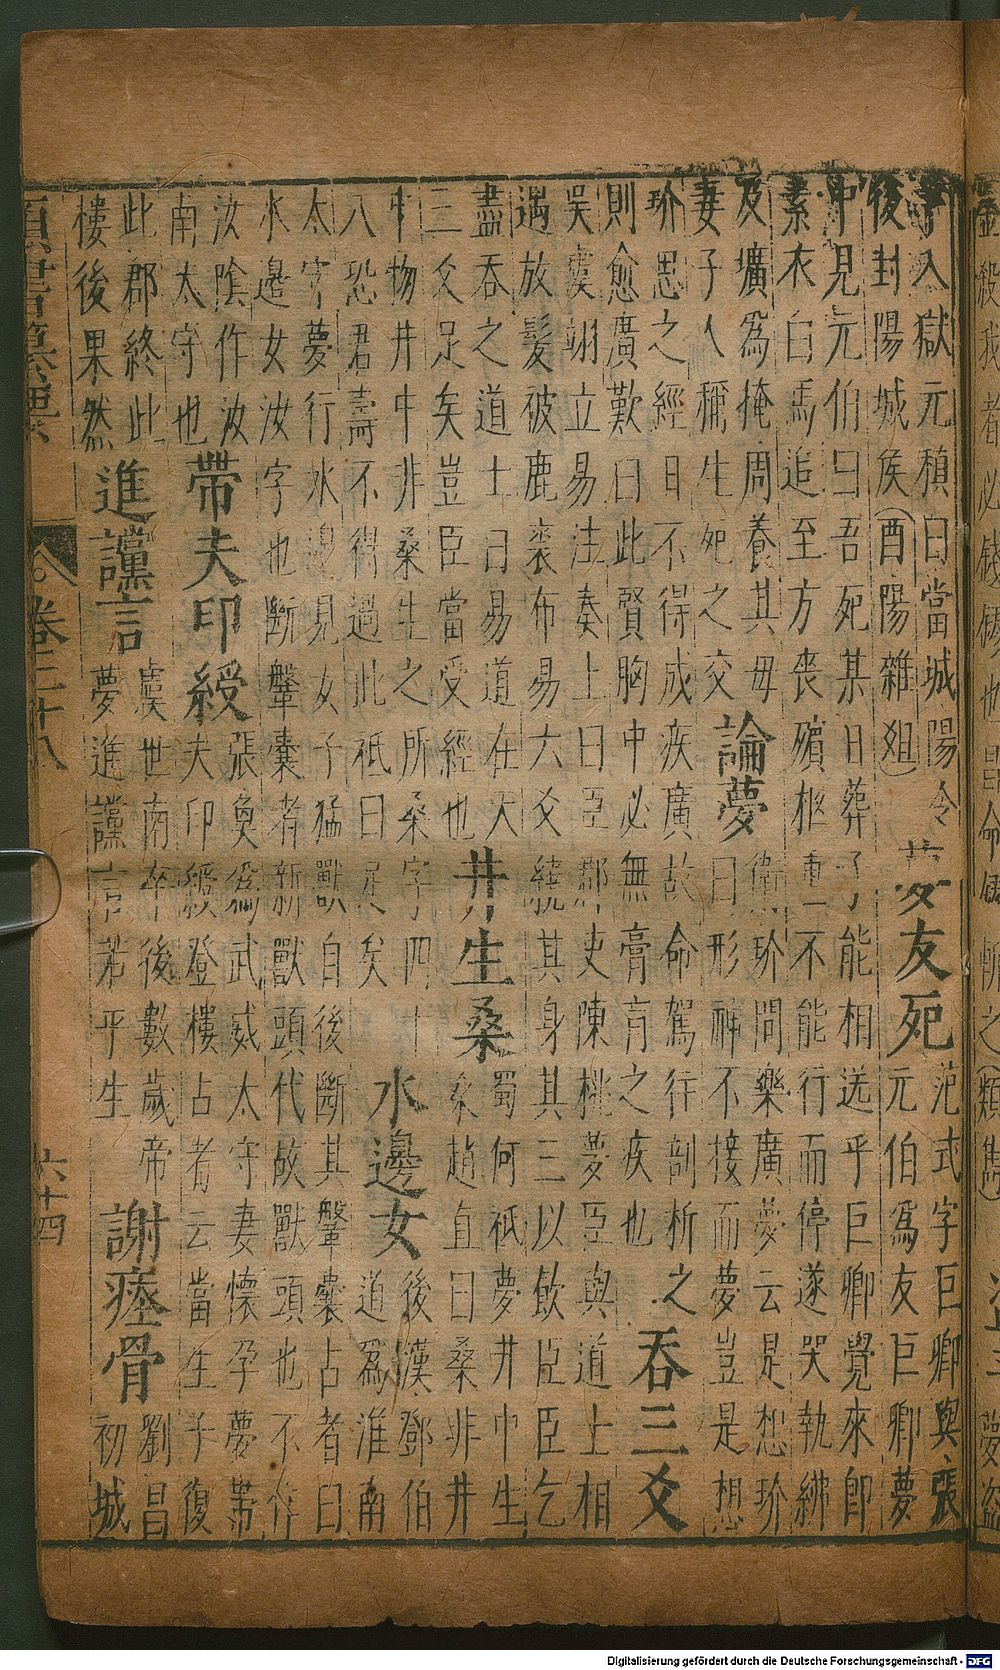 殺我者必錢鏐也
之(類雋)
事入獄元稹曰當城陽令
後封陽城侯(酉陽雜俎)
夢友死
范式字巨卿與張
元伯爲友巨卿夢
中見元伯曰吾死某日葬子能相送乎巨卿覺來即
素衣白馬追至方喪殯柩重不能行而停遂哭執紼
及壙爲掩周養其母
妻子人稱生死之交
論夢
衛玠問樂廣夢云是想玠
曰形神不接而夢豈是想
玠思之經日不得成疾廣故命駕行剖析之
則愈廣歎曰此賢胸中必無膏肓之疾也
吞三爻
吳虞翊立易注奏上曰臣郡吏陳桃夢臣與道士相
遇放髮彼鹿裘布易六爻繞其身其三以飲臣臣乞
盡吞之道士曰易道在天
三爻足矣豈臣當受經也
井生桑
蜀何祇夢井中生
桑趙直曰桑非井
中物井中非桑生之所桑字四十
八恐君壽不得過此祇曰足矣
水邊女
後漢鄧伯
道爲淮南
太守夢行水邊見女子猛獸自後斷其鞶囊占者曰
水邊女汝字也斷鞶囊者新獸頭代故獸頭也不作
汝陰作汝
南太守也
帶夫印綬
張奐爲武威太守妻懷孕夢帶
夫印綬登樓占者云當生子復
此郡終此
樓後果然
進讜言
虞世南卒後數歲帝
夢進讜言若平生
謝瘞骨
劉昌
初城
卷三十八
六十四
Digitalisierung gefördert durch die Deutsche Forschungsgemeinschaft - DFG